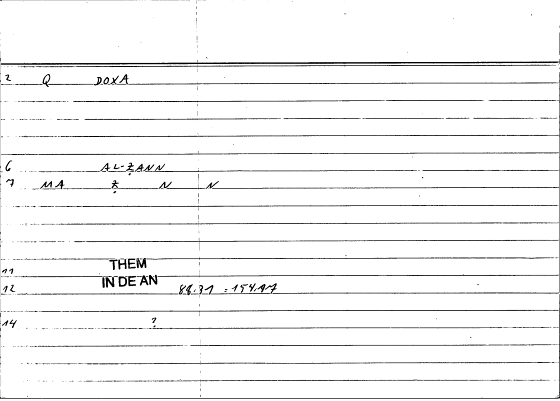 2 Q DOXA
6 AL-ẒANN
7 MA Ẓ N N
11 THEM
IN DE AN
12 88.31 : 154.17
14 ?